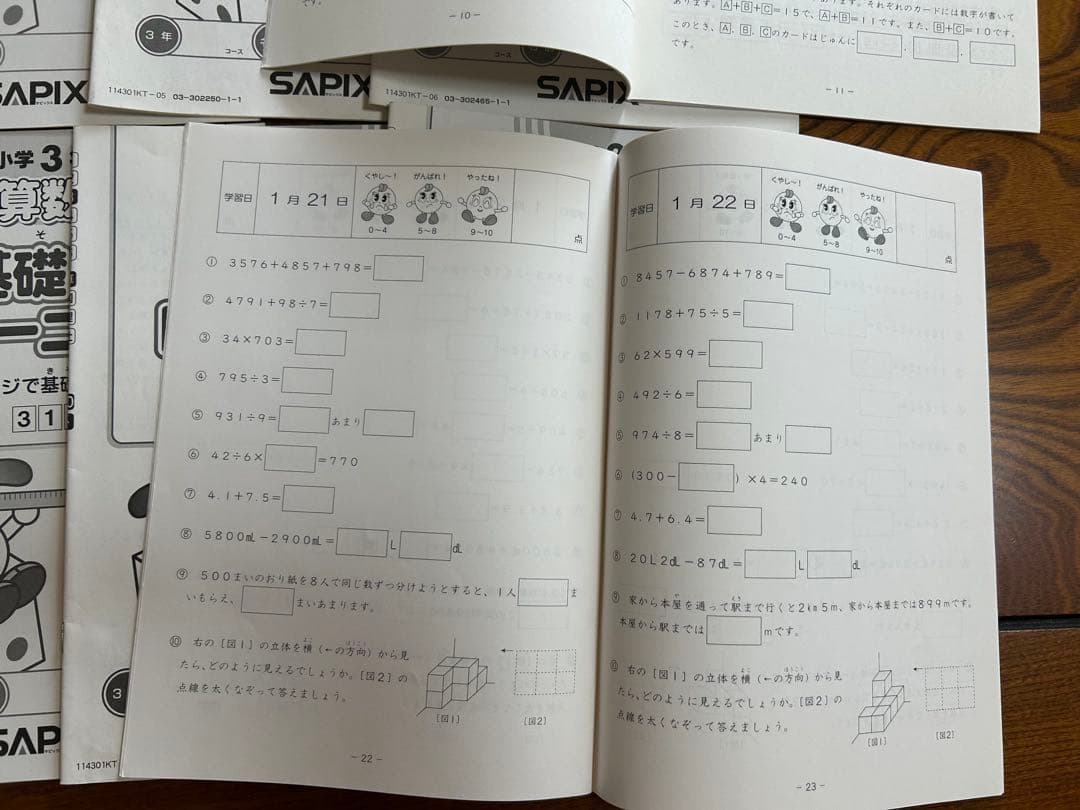 です。
－10－
あります。それぞれのカードには数字が書いて
あります。A＋B＋C＝15で、A＋B＝11です。また、B＋C＝10です。
このとき、A、B、Cのカードはじゅんに　、　、
です。
－11－
3年
コース
SAPIX
サピックス
114301KT－05 03－302250－1－1
SAPIX
サピックス
114301KT－06 03－302465－1－1
SAPIX
小学3
算数
きそ
基礎
ジで基礎
31
3
SAPIX
114301KT
学習日
1月21日
くやし～！
がんばれ！
やったね！
0～4
5～8
9～10
点
① 3576＋4857＋798＝
② 4791＋98÷7＝
③ 34×703＝
④ 795÷3＝
⑤ 931÷9＝　あまり
⑥ 42÷6×　＝770
⑦ 4.1＋7.5＝
⑧ 5800mL－2900mL＝　L　dL
⑨ 500まいのおり紙を8人で同じ数ずつ分けようとすると、1人　ま
いもらえ、　まいあまります。
⑩ 右の［図1］の立体を横（←の方向）から見
よこ
ほうこう
たら、どのように見えるでしょうか。［図2］の
点線を太くなぞって答えましょう。
［図1］
［図2］
－22－
学習日
1月22日
くやし～！
がんばれ！
やったね！
0～4
5～8
9～10
点
① 8457－6874＋789＝
② 1178＋75÷5＝
③ 62×599＝
④ 492÷6＝
⑤ 974÷8＝　あまり
⑥ (300－　)×4＝240
⑦ 4.7＋6.4＝
⑧ 20L2dL－87dL＝　L　dL
⑨ 家から本屋を通って駅まで行くと2km5m、家から本屋までは899mです。
や
えき
本屋から駅までは　mです。
⑩ 右の［図1］の立体を横（←の方向）から見
よこ
ほうこう
たら、どのように見えるでしょうか。［図2］の
点線を太くなぞって答えましょう。
［図1］
［図2］
－23－